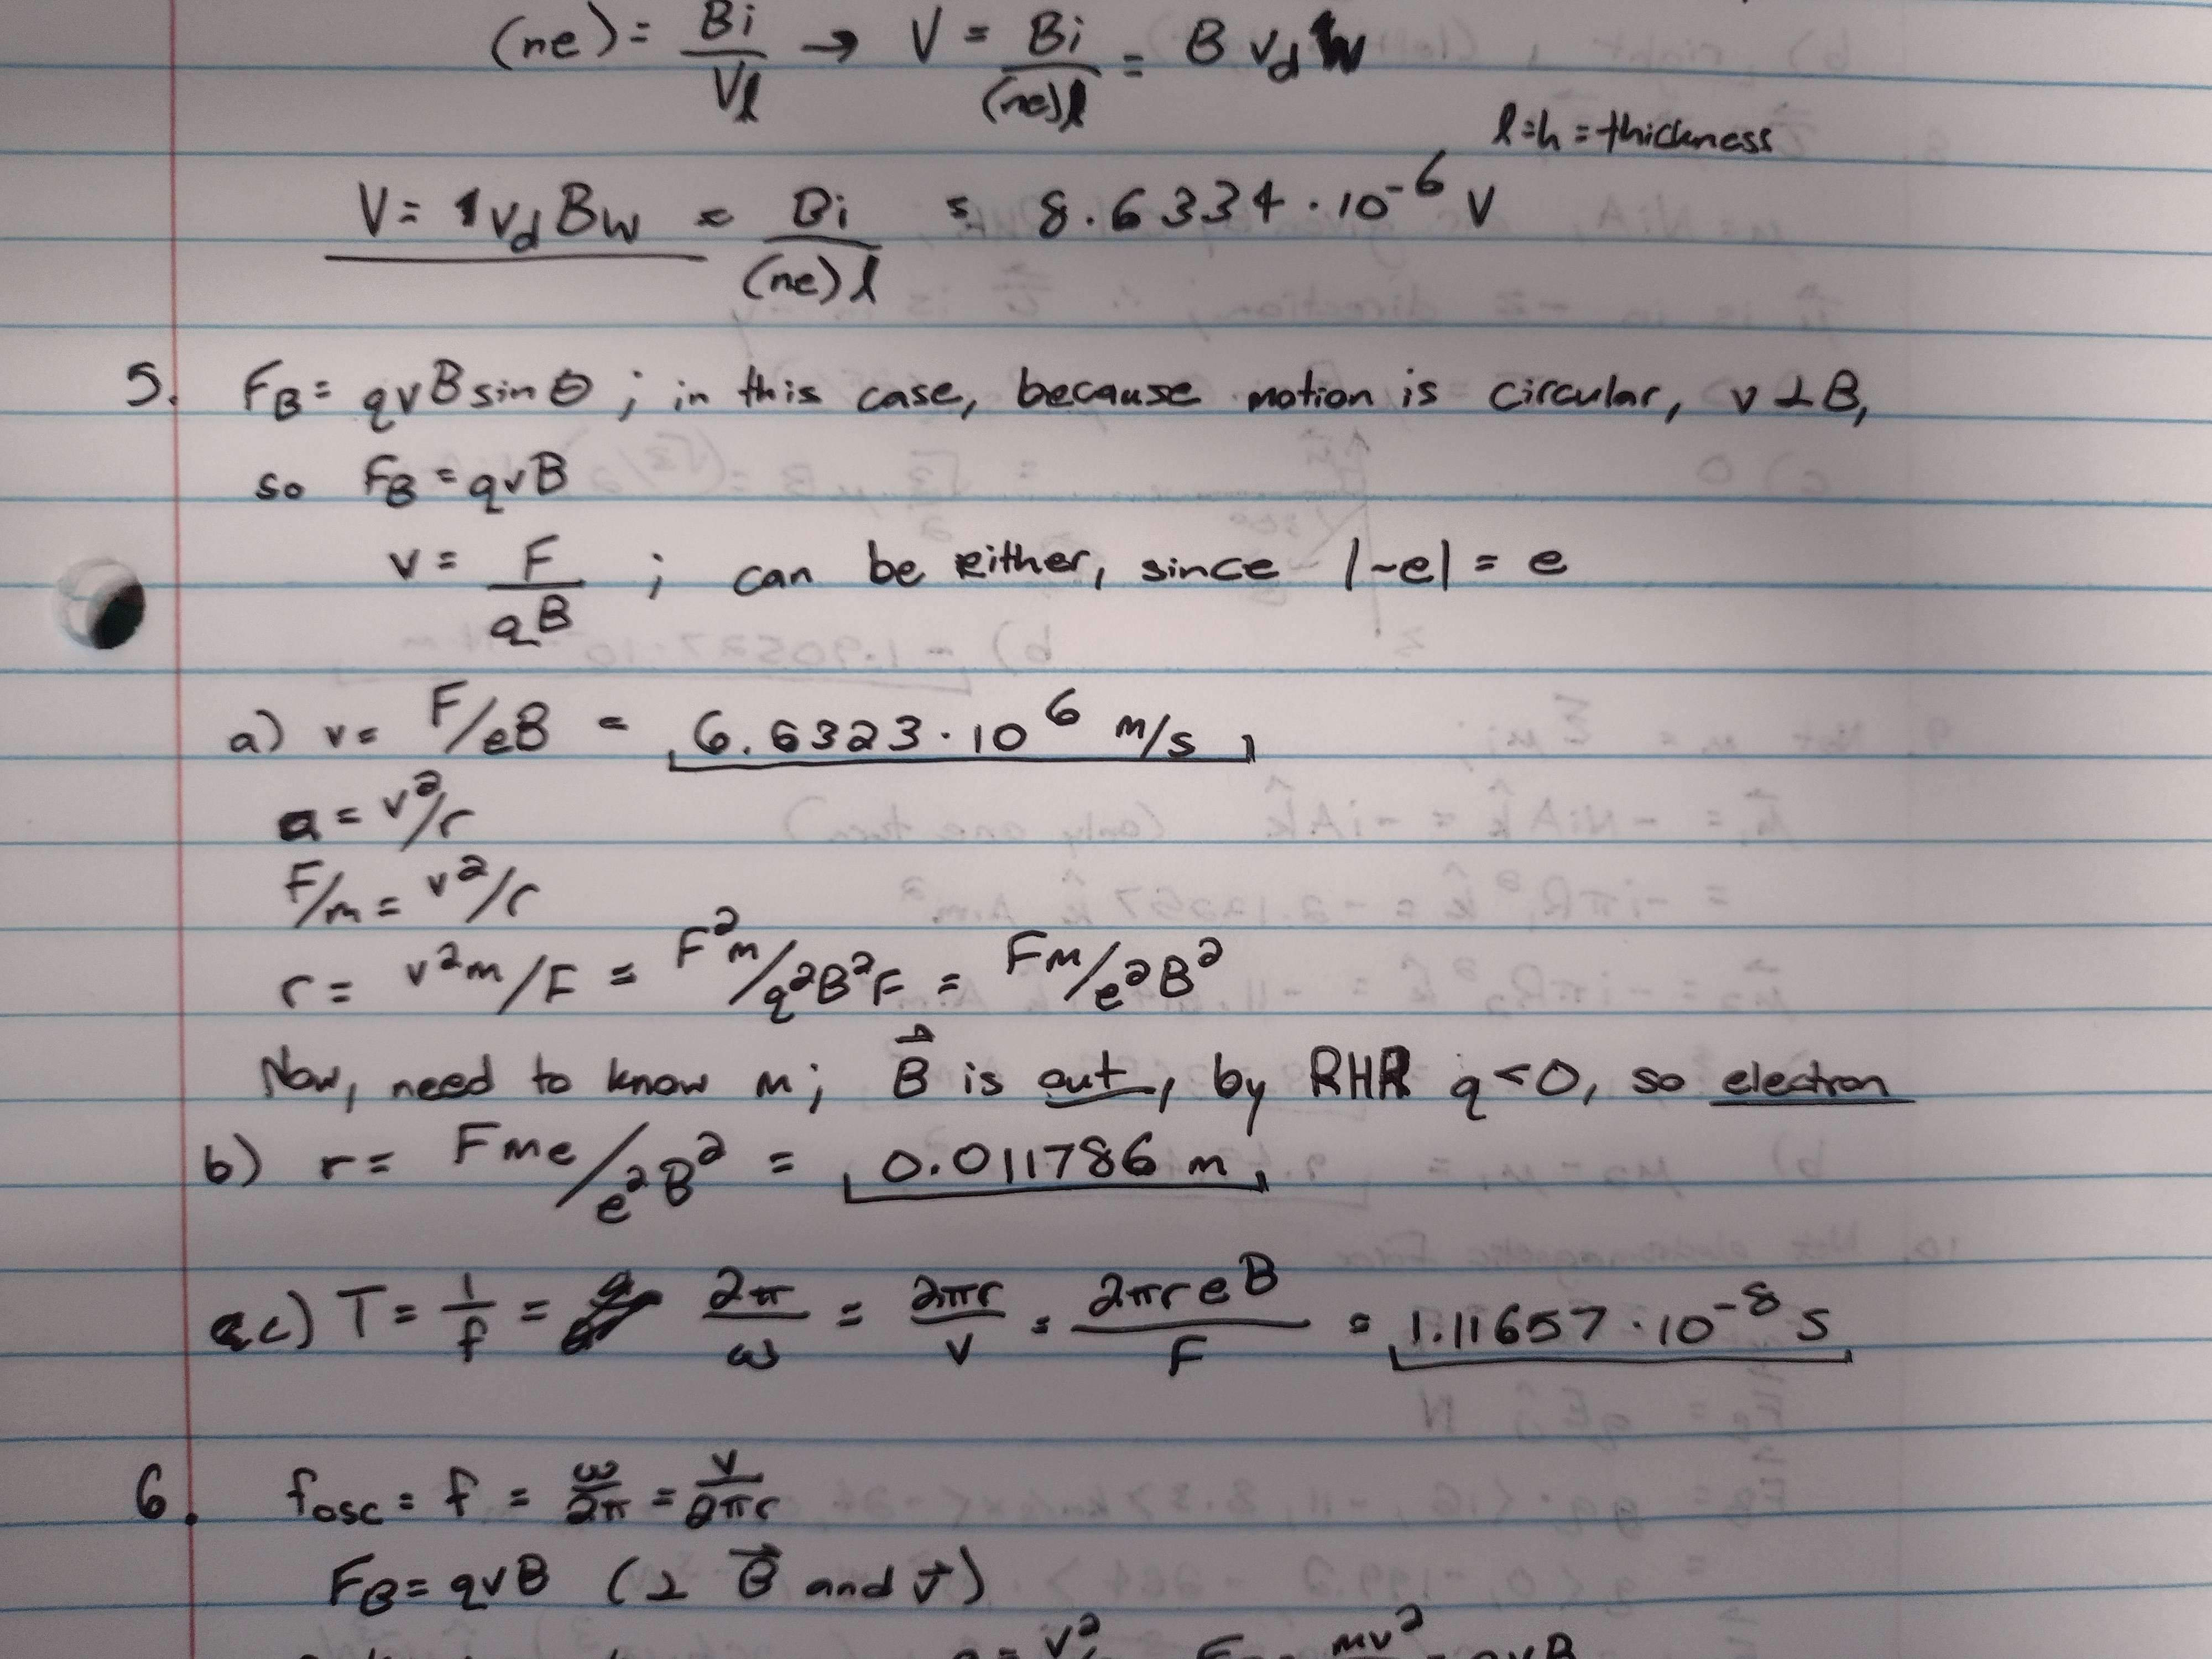 (ne) = Bi/Vl → V = Bi/(ne)l = B v_d w
l=h=thickness
V = 1 v_d B w = Bi/(ne)l = 8.6334·10⁻⁶ V
5. F_B = qvB sin θ ; in this case, because motion is circular, v⊥B,
so F_B = qvB
v = F/qB ; can be either, since |-e| = e
a) v = F/eB = 6.6323·10⁶ m/s
a = v²/r
F/m = v²/r
r = v²m/F = F²m/q²B²F = Fm/e²B²
Now, need to know m; B⃗ is out, by RHR q<0, so electron
b) r = Fme/e²B² = 0.011786 m
c) T = 1/f = 2π/ω = 2πr/v = 2πreB/F = 1.11657·10⁻⁸ s
6. fosc = f = ω/2π = v/2πr
F_B = qvB (⊥ B⃗ and v⃗)